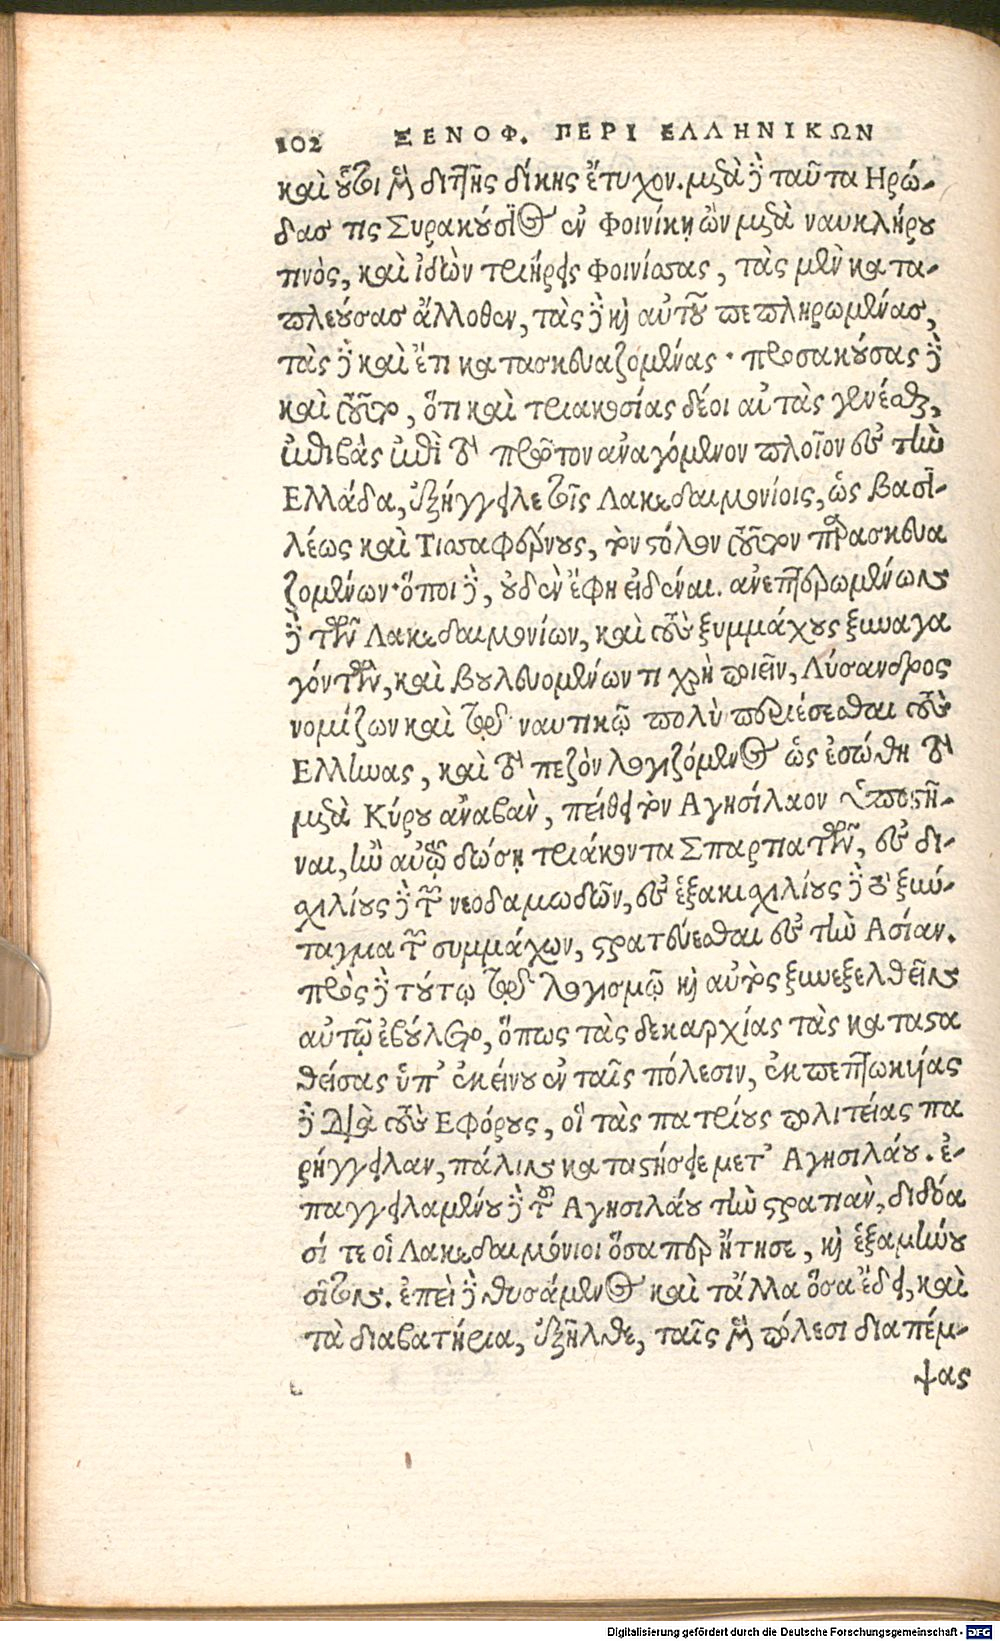 102 ΞΕΝΟΦ. ΠΕΡΙ ΕΛΛΗΝΙΚΩΝ
καὶ οὗτοι μὲν διττῆς δίκης ἔτυχον. μετὰ δὲ ταῦτα Ηρώ-
δας τις Συρακούσιος ἐν Φοινίκῃ ὢν μετὰ ναυκλήρου
τινὸς, καὶ ἰδὼν τριήρεις Φοινίσσας, τὰς μὲν κατα-
πλεούσας ἄλλοθεν, τὰς δὲ καὶ αὐτοῦ πεπληρωμένας,
τὰς δὲ καὶ ἔτι κατασκευαζομένας· προσακούσας δὲ
καὶ τοῦτο, ὅτι καὶ τριακοσίας δέοι αὐτὰς γενέσθαι,
ἐπιβὰς ἐπὶ τὸ πρῶτον ἀναγόμενον πλοῖον εἰς τὴν
Ελλάδα, ἐξήγγειλε τοῖς Λακεδαιμονίοις, ὡς βασι-
λέως καὶ Τισσαφέρνους, τὸν στόλον τοῦτον παρασκευα
ζομένων· ὅποι δὲ, οὐδὲν ἔφη εἰδέναι. ἀνεπτερωμένων
δὲ τῶν Λακεδαιμονίων, καὶ τοὺς ξυμμάχους ξυναγα
γόντων, καὶ βουλευομένων τι χρὴ ποιεῖν, Λύσανδρος
νομίζων καὶ τῷ ναυτικῷ πολὺ περιέσεσθαι τοὺς
Ελληνας, καὶ τὸ πεζὸν λογιζόμενος ὡς ἐσώθη τὸ
μετὰ Κύρου ἀναβὰν, πείθει τὸν Αγησίλαον ὑποστῆ-
ναι, ἢν αὐτῷ δώσῃ τριάκοντα Σπαρτιατῶν, εἰς δι-
χιλίους δὲ τῶν νεοδαμωδῶν, εἰς ἑξακιχιλίους δὲ τὸ ξύν-
ταγμα τῶν συμμάχων, στρατεύεσθαι εἰς τὴν Ασίαν.
πρὸς δὲ τούτῳ τῷ λογισμῷ καὶ αὐτὸς ξυνεξελθεῖν
αὐτῷ ἐβούλετο, ὅπως τὰς δεκαρχίας τὰς κατασta
θείσας ὑπ' ἐκείνου ἐν ταῖς πόλεσιν, ἐκπεπτωκυίας
δὲ διὰ τοὺς Εφόρους, οἳ τὰς πατρίους πολιτείας πα
ρήγγειλαν, πάλιν καταστήσειε μετ' Αγησιλάου. ἐ-
παγγειλαμένου δὲ τοῦ Αγησιλάου τὴν στρατιὰν, διδόα
σί τε οἱ Λακεδαιμόνιοι ὅσαπερ ᾔτησε, καὶ ἑξαμήνου
σῖτον. ἐπεὶ δὲ θυσάμενος καὶ τἄλλα ὅσα ἔδει, καὶ
τὰ διαβατήρια, ἐξῆλθε, ταῖς μὲν πόλεσι διαπέμ-
ψας
Digitalisierung gefördert durch die Deutsche Forschungsgemeinschaft - DFG